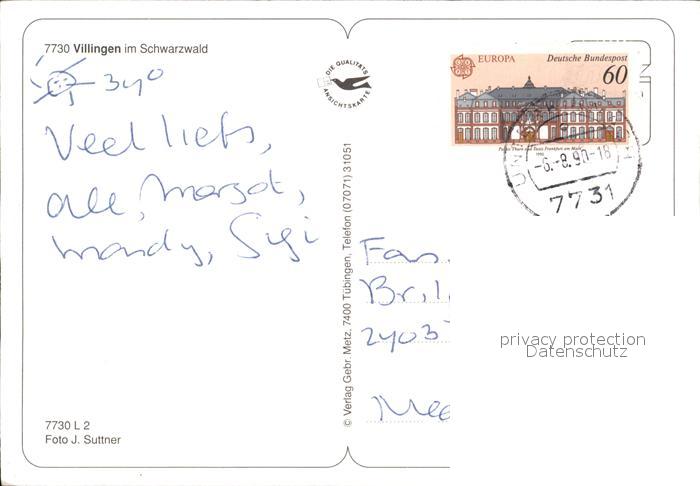 7730 Villingen im Schwarzwald
34°
DIE QUALITÄTS
ANSICHTSKARTE
Veel liefs,
Margot,
Mandy, Sigi
7730 L 2
Foto J. Suttner
© Verlag Gebr. Metz, 7400 Tübingen, Telefon (07071) 31051
EUROPA Deutsche Bundespost
60
Palais Thurn und Taxis Frankfurt am Main
1990
-6.-8.90-18
7731
Fam.
Bril
2403
privacy protection
Datenschutz